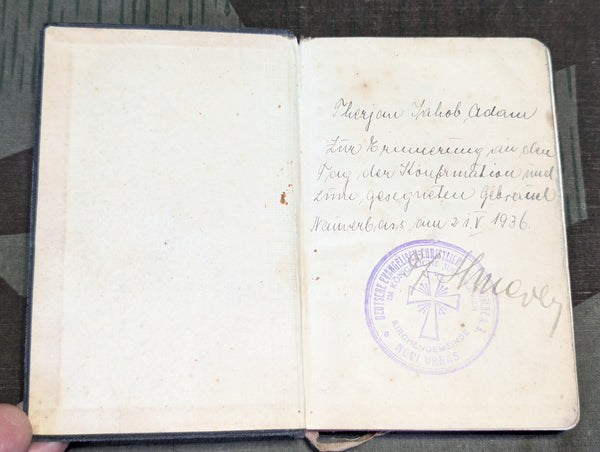 Therjan Jakob, Adam
Zur Erinnerung an den
Tag der Konfirmation und
zum gesegneten Gebrauch
Neuwerbass, am 21.V. 1936.
DEUTSCHE EVANGELISCH-CHRISTLICHE
IM KÖNIGREICHE
KIRCHENGEMEINDE
NOVI VRBAS